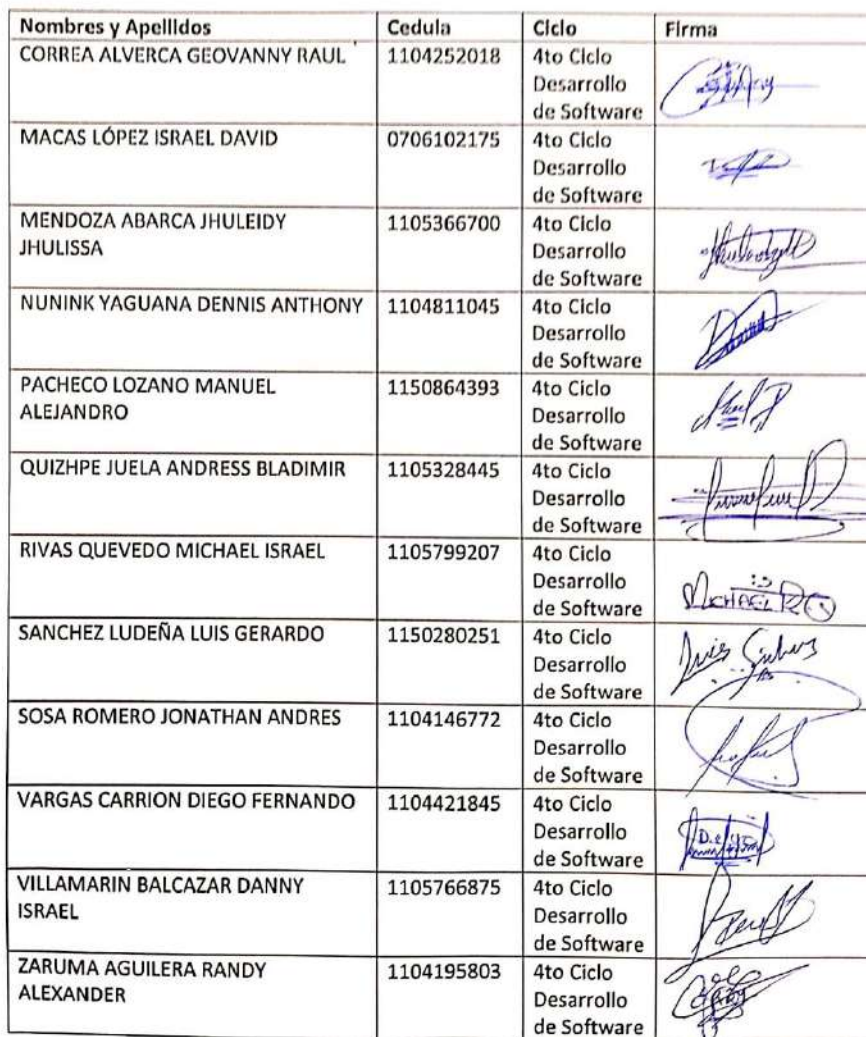 Nombres y Apellidos Cedula Ciclo Firma
CORREA ALVERCA GEOVANNY RAUL 1104252018 4to Ciclo
Desarrollo
de Software
MACAS LÓPEZ ISRAEL DAVID 0706102175 4to Ciclo
Desarrollo
de Software
MENDOZA ABARCA JHULEIDY 1105366700 4to Ciclo
JHULISSA Desarrollo
de Software
NUNINK YAGUANA DENNIS ANTHONY 1104811045 4to Ciclo
Desarrollo
de Software
PACHECO LOZANO MANUEL 1150864393 4to Ciclo
ALEJANDRO Desarrollo
de Software
QUIZHPE JUELA ANDRESS BLADIMIR 1105328445 4to Ciclo
Desarrollo
de Software
RIVAS QUEVEDO MICHAEL ISRAEL 1105799207 4to Ciclo
Desarrollo
de Software MICHAEL R
SANCHEZ LUDEÑA LUIS GERARDO 1150280251 4to Ciclo
Desarrollo Luis
de Software
SOSA ROMERO JONATHAN ANDRES 1104146772 4to Ciclo
Desarrollo
de Software
VARGAS CARRION DIEGO FERNANDO 1104421845 4to Ciclo
Desarrollo
de Software
VILLAMARIN BALCAZAR DANNY 1105766875 4to Ciclo
ISRAEL Desarrollo
de Software
ZARUMA AGUILERA RANDY 1104195803 4to Ciclo
ALEXANDER Desarrollo
de Software